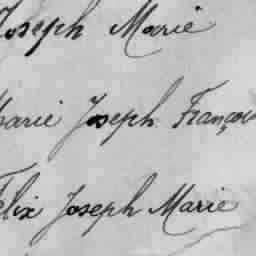 Joseph Marie
Marie Joseph François
Félix Joseph Marie